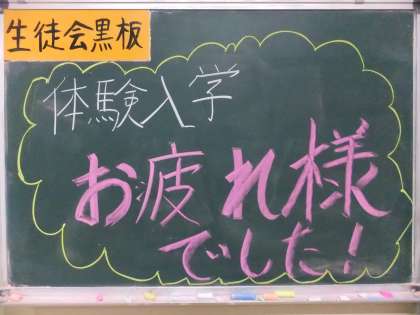 生徒会黒板
体験入学
お疲れ様
でした！